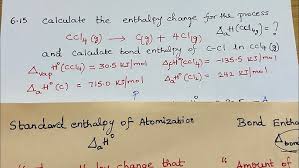 6.15 calculate the enthalpy change for the process
CCl4(g) → C(g) + 4Cl(g) ΔH(CCl4)g = ?
and calculate bond enthalpy of C-Cl in CCl4(g)
ΔvapH°(CCl4) = 30.5 kJ/mol ΔfH°(CCl4) = -135.5 kJ/mol
ΔaH°(C) = 715.0 kJ/mol Δa(Cl2) = 242 kJ/mol
Standard enthalpy of Atomization Bond Entha
ΔaH°
change that Δbond
amount